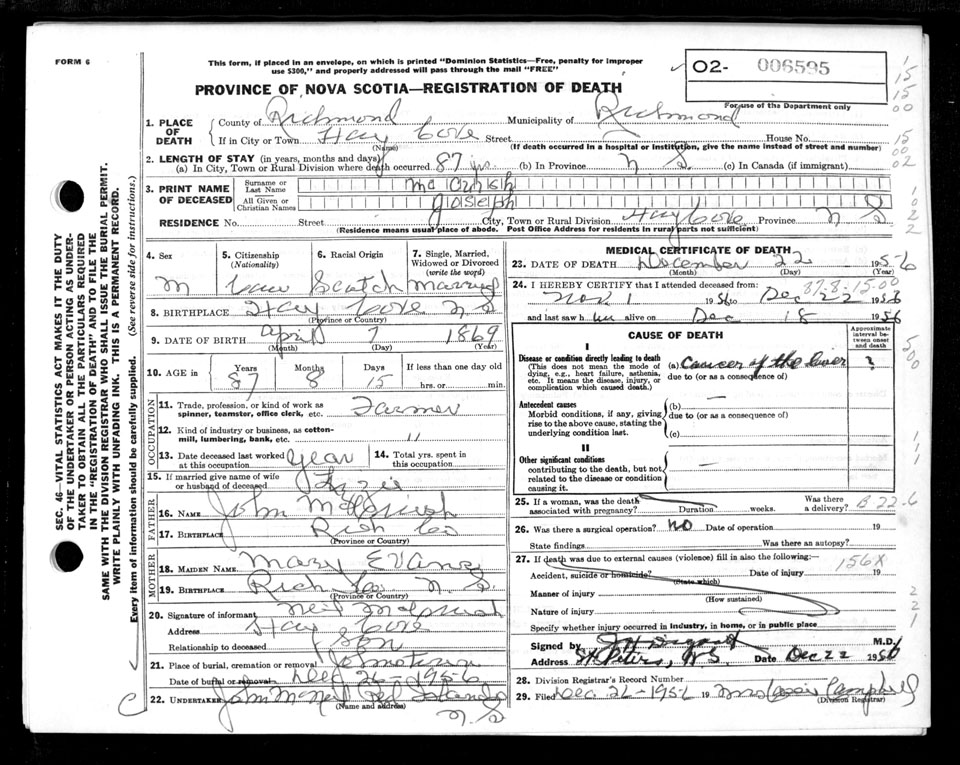 FORM 6
This form, if placed in an envelope, on which is printed "Dominion Statistics—Free, penalty for improper
use $300," and properly addressed will pass through the mail "FREE"
PROVINCE OF NOVA SCOTIA—REGISTRATION OF DEATH
O2- 006595
For use of the Department only
1. PLACE OF DEATH { County of Richmond Municipality of Richmond
If in City or Town Hay Cove Street House No.
(Name) (If death occurred in a hospital or institution, give the name instead of street and number)
2. LENGTH OF STAY (in years, months and days)
(a) In City, Town or Rural Division where death occurred 87 yrs. (b) In Province N S. (c) In Canada (if immigrant)
3. PRINT NAME OF DECEASED
Surname or Last Name Mc Cuish
All Given or Christian Names Joseph
RESIDENCE No. Street City, Town or Rural Division Hay Cove Province N S
(Residence means usual place of abode. Post Office Address for residents in rural parts not sufficient)
4. Sex M
5. Citizenship (Nationality) Can
6. Racial Origin Scotch
7. Single, Married, Widowed or Divorced (write the word) Married
8. BIRTHPLACE Hay Cove N S
(Province or Country)
9. DATE OF BIRTH April 7 1869
(Month) (Day) (Year)
10. AGE in { Years 87 Months 8 Days 15 If less than one day old
hrs. or min.
OCCUPATION
11. Trade, profession, or kind of work as
spinner, teamster, office clerk, etc. Farmer
12. Kind of industry or business, as cotton-
mill, lumbering, bank, etc. "
13. Date deceased last worked at this occupation Year
14. Total yrs. spent in this occupation
15. If married give name of wife
or husband of deceased Lizzie
FATHER
16. NAME John McCuish
17. BIRTHPLACE Rich Co
(Province or Country)
MOTHER
18. MAIDEN NAME Mary Evans
19. BIRTHPLACE Rich Co N. S.
(Province or Country)
20. Signature of informant Neil McCuish
Address Hay Cove
Relationship to deceased Son
21. Place of burial, cremation or removal Johnstown
Date of burial or removal Dec 26-1956
22. UNDERTAKER John McNeil Red Islands
(Name and address)
N. S
MEDICAL CERTIFICATE OF DEATH
23. DATE OF DEATH December 22 1956
(Month) (Day) (Year)
37-8-15-00
24. I HEREBY CERTIFY that I attended deceased from:
Nov. 1 1956 to Dec 22 1956
and last saw him alive on Dec 18 1956
CAUSE OF DEATH
Approximate interval between onset and death
I
Disease or condition directly leading to death
(This does not mean the mode of dying, e.g., heart failure, asthenia, etc. It means the disease, injury, or complication which caused death.)
(a) Cancer of the liver ?
due to (or as a consequence of)
Antecedent causes
Morbid conditions, if any, giving rise to the above cause, stating the underlying condition last.
(b) —
due to (or as a consequence of)
(c)
II
Other significant conditions
contributing to the death, but not related to the disease or condition causing it. —
25. If a woman, was the death
associated with pregnancy? Duration weeks. Was there a delivery? B 22-6
26. Was there surgical operation? NO Date of operation 19
State findings Was there an autopsy?
27. If death was due to external causes (violence) fill in also the following: 156X
Accident, suicide or homicide? Date of injury 19
(State which)
Manner of injury
(How sustained)
Nature of injury
Specify whether injury occurred in industry, in home, or in public place
Signed by M.D.
Address St. Peters, N.S. Date Dec 22 1956
28. Division Registrar's Record Number
29. Filed Dec 26-1956 19 Mrs Campbell
(Division Registrar)
SEC. 46—VITAL STATISTICS ACT MAKES IT THE DUTY
OF THE UNDERTAKER OR PERSON ACTING AS UNDER-
TAKER TO OBTAIN ALL THE PARTICULARS REQUIRED
IN THE "REGISTRATION OF DEATH" AND TO FILE THE
SAME WITH THE DIVISION REGISTRAR WHO SHALL ISSUE THE BURIAL PERMIT.
WRITE PLAINLY WITH UNFADING INK. THIS IS A PERMANENT RECORD.
Every item of information should be carefully supplied. (See reverse side for instructions.)